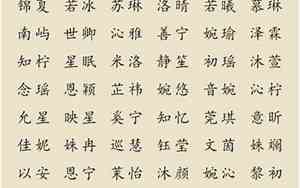 锦夏 若冰 苏琳 洛晴 若曦 慕琳
南屿 世卿 沁雅 善宁 婉瑜 泽霖
知柠 星眠 米洛 静笙 初瑶 沐萱
念瑶 恩颖 芷祎 婉悠 音婉 沁柠
允星 映星 奚宁 知忆 菀琪 意昕
佳妮 姝冉 巡慧 钰莹 文茵 姝斓
以安 恩宁 茉怡 沐颜 婉沁 黎初